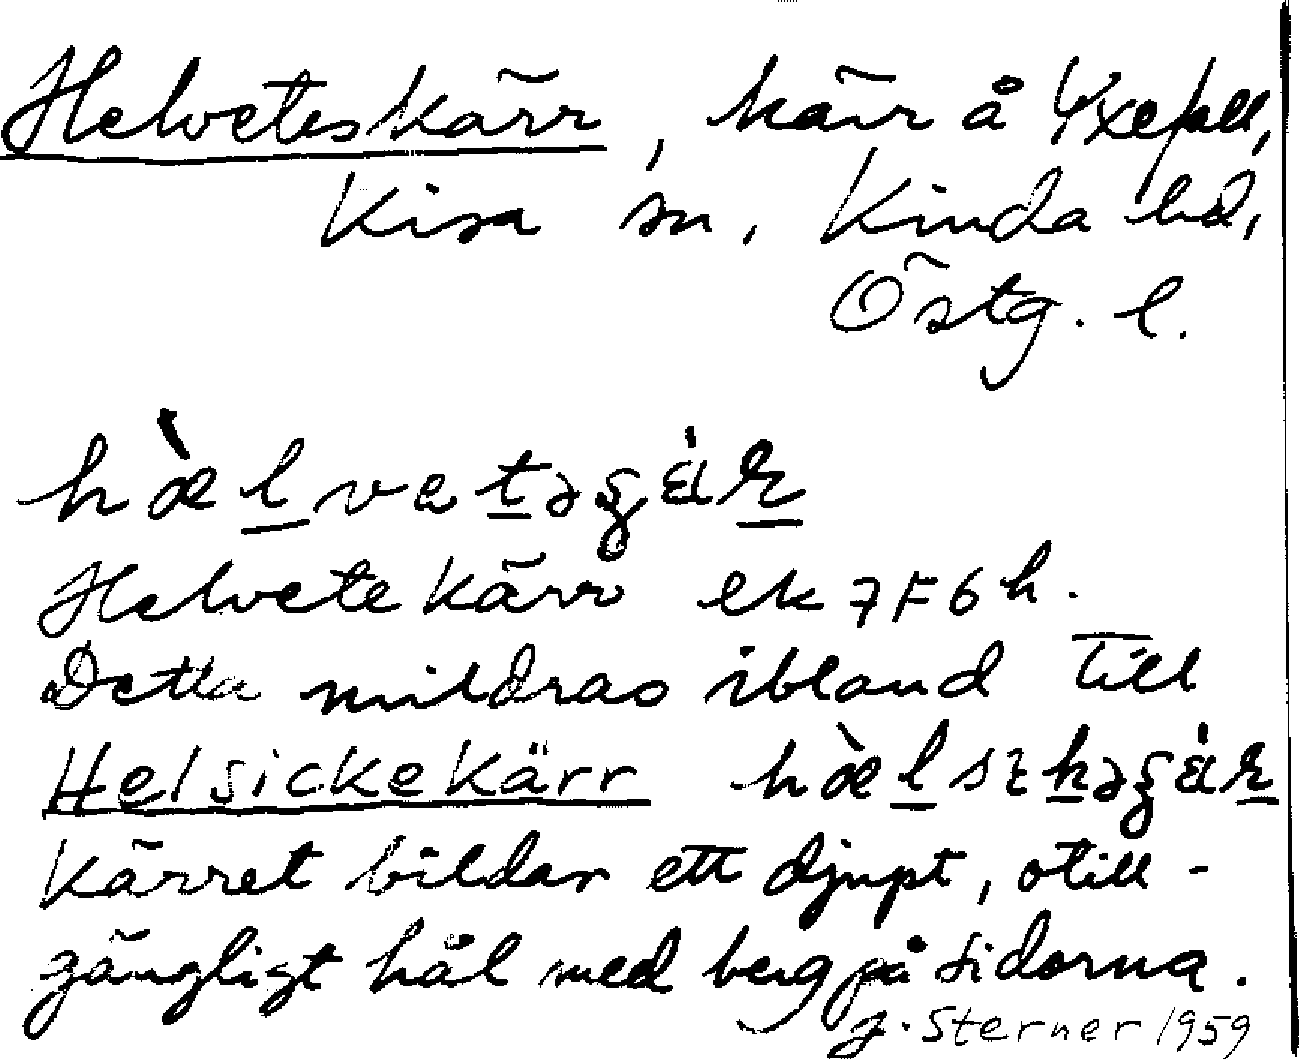 Helveteskärr, kärr å Yxefall,
Kisa sn, Kinda hd,
Östg. l.
Helvetekärr ek 7F6h.
Detta mildras ibland till
Helsickekärr
Kärret bildar ett djupt, otill-
gängligt hål med berg på sidorna.
J. Sterner 1959